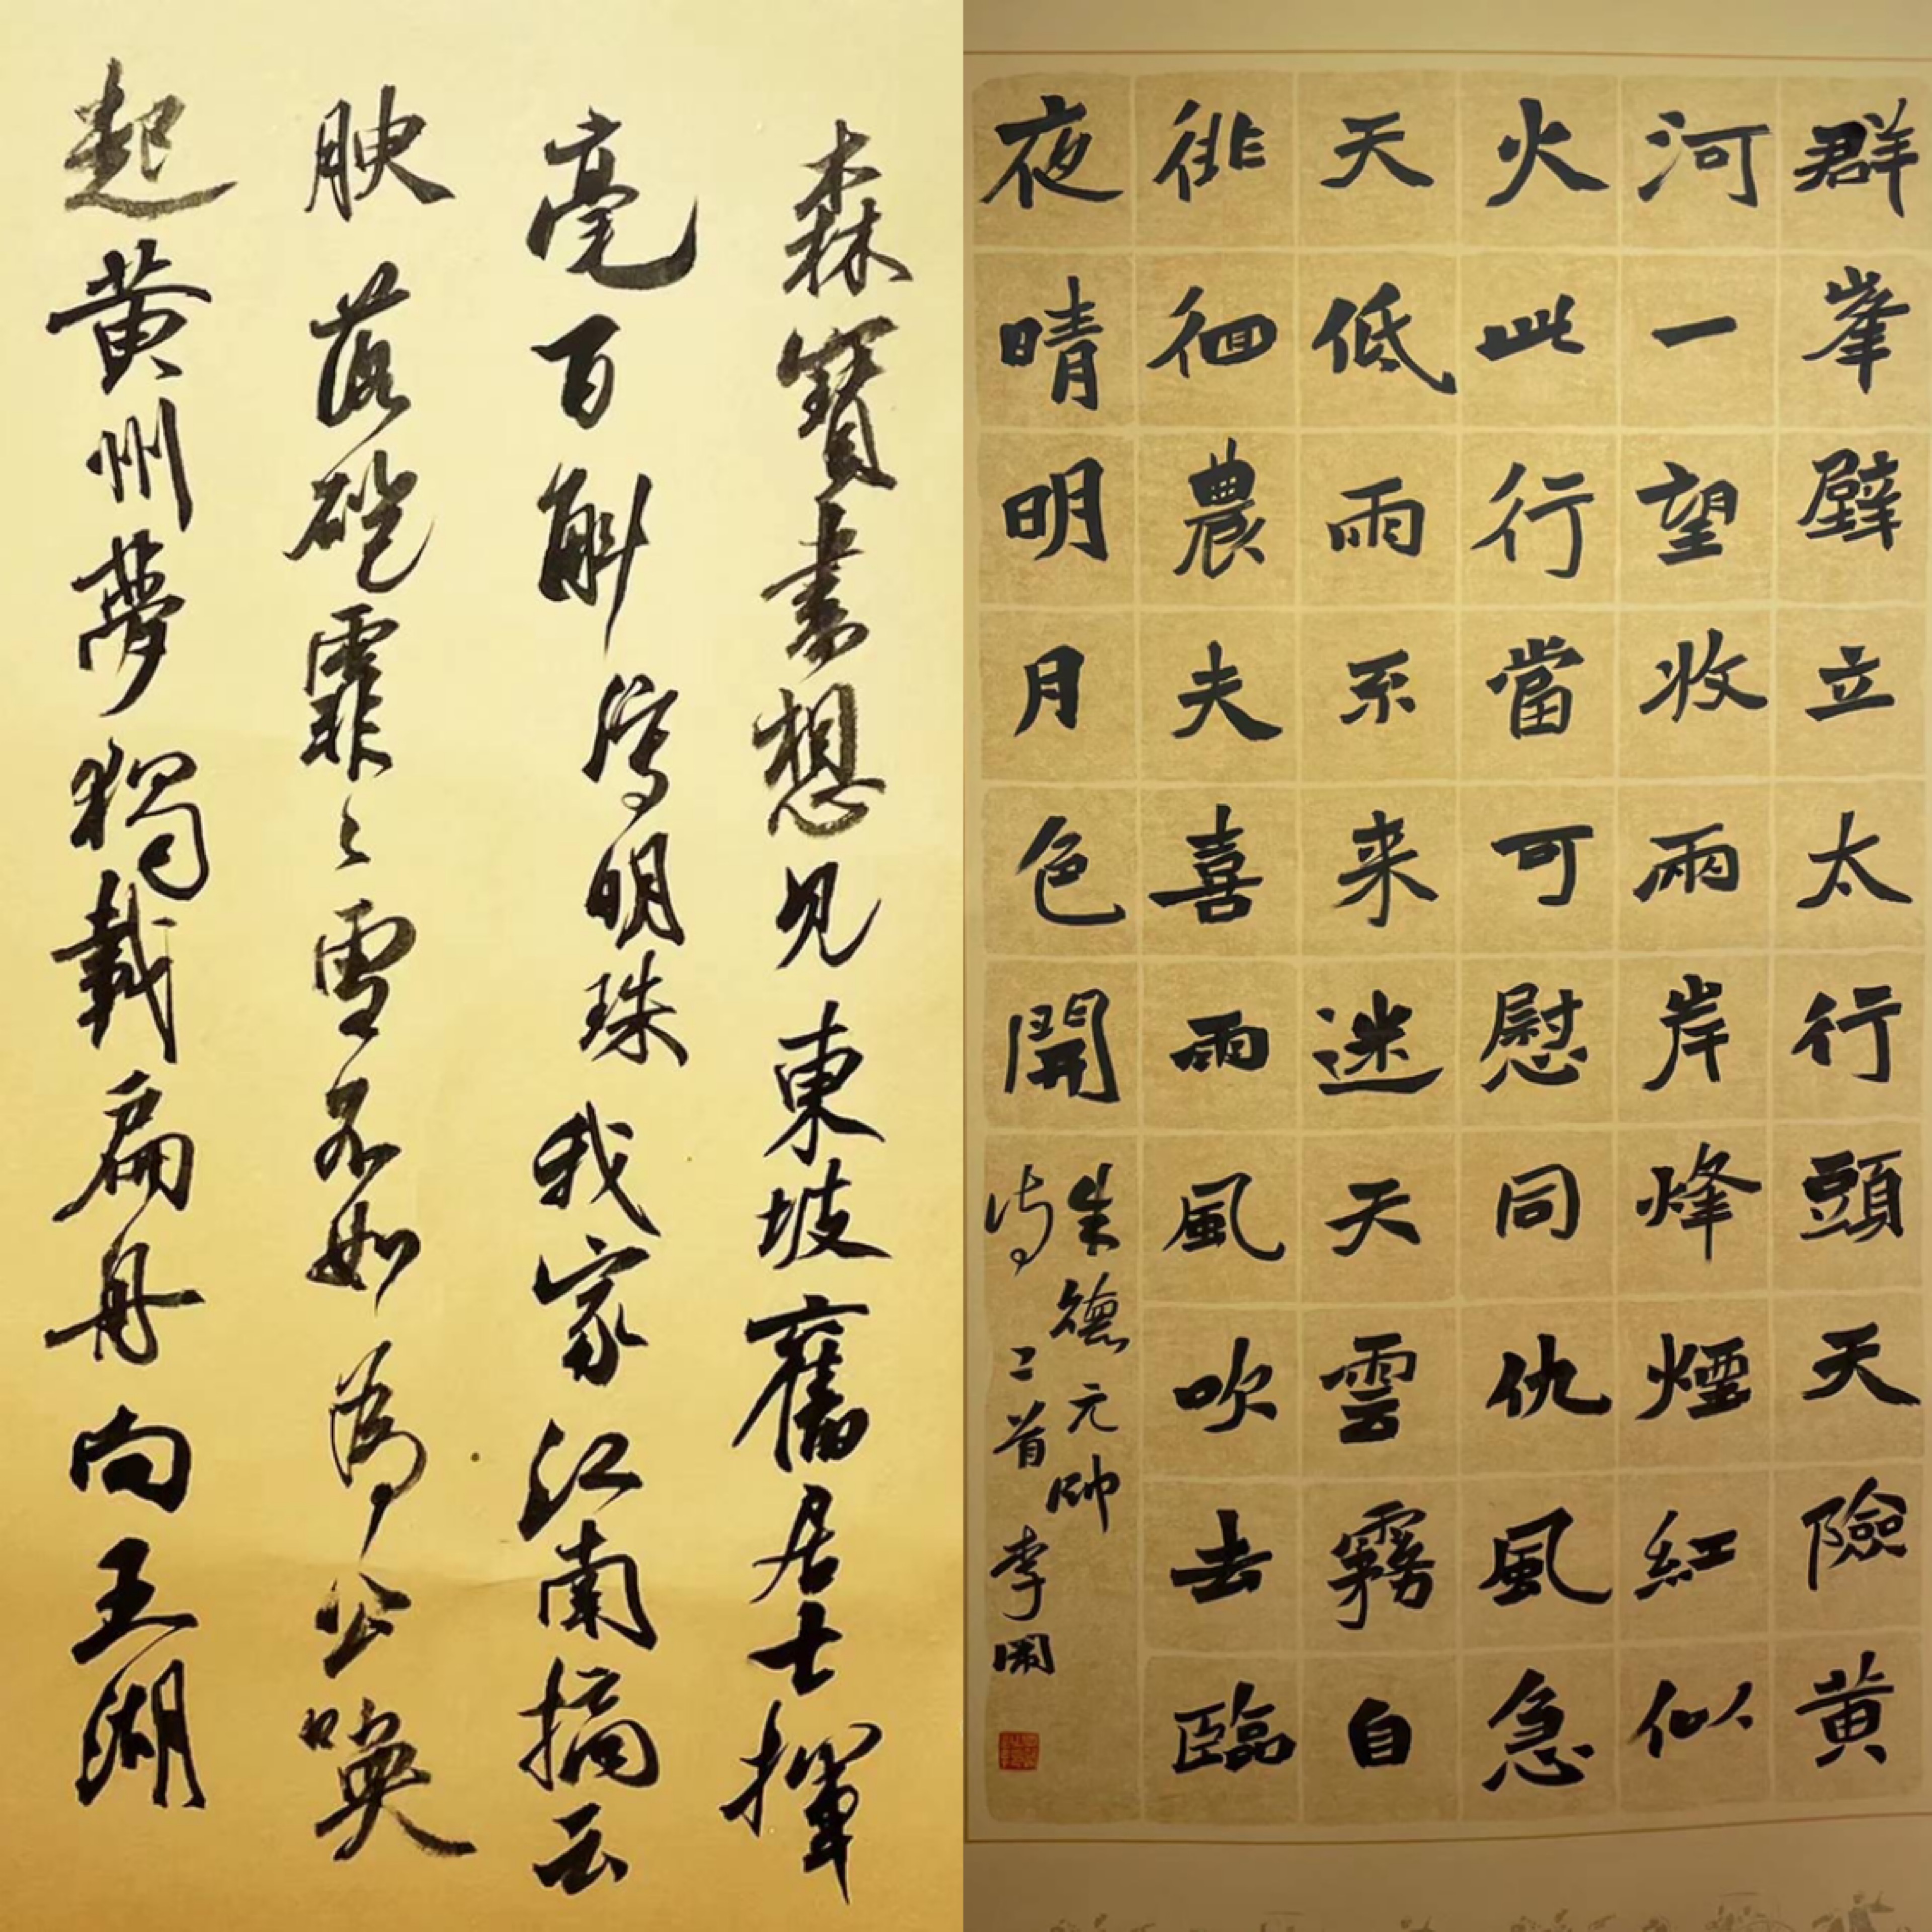 森寶書想見東坡舊居士揮
毫百斛瀉明珠我家江南摘云
腴落磑霏々雪不如為公喚
起黄州夢獨載扁舟向五湖
群峯壁立太行頭天險黄
河一望收兩岸烽煙紅似
火此行當可慰同仇風急
天低雨系来迷天雲霧自
徘徊農夫喜雨風吹去臨
夜晴明月色開
朱德元帥
诗二首李